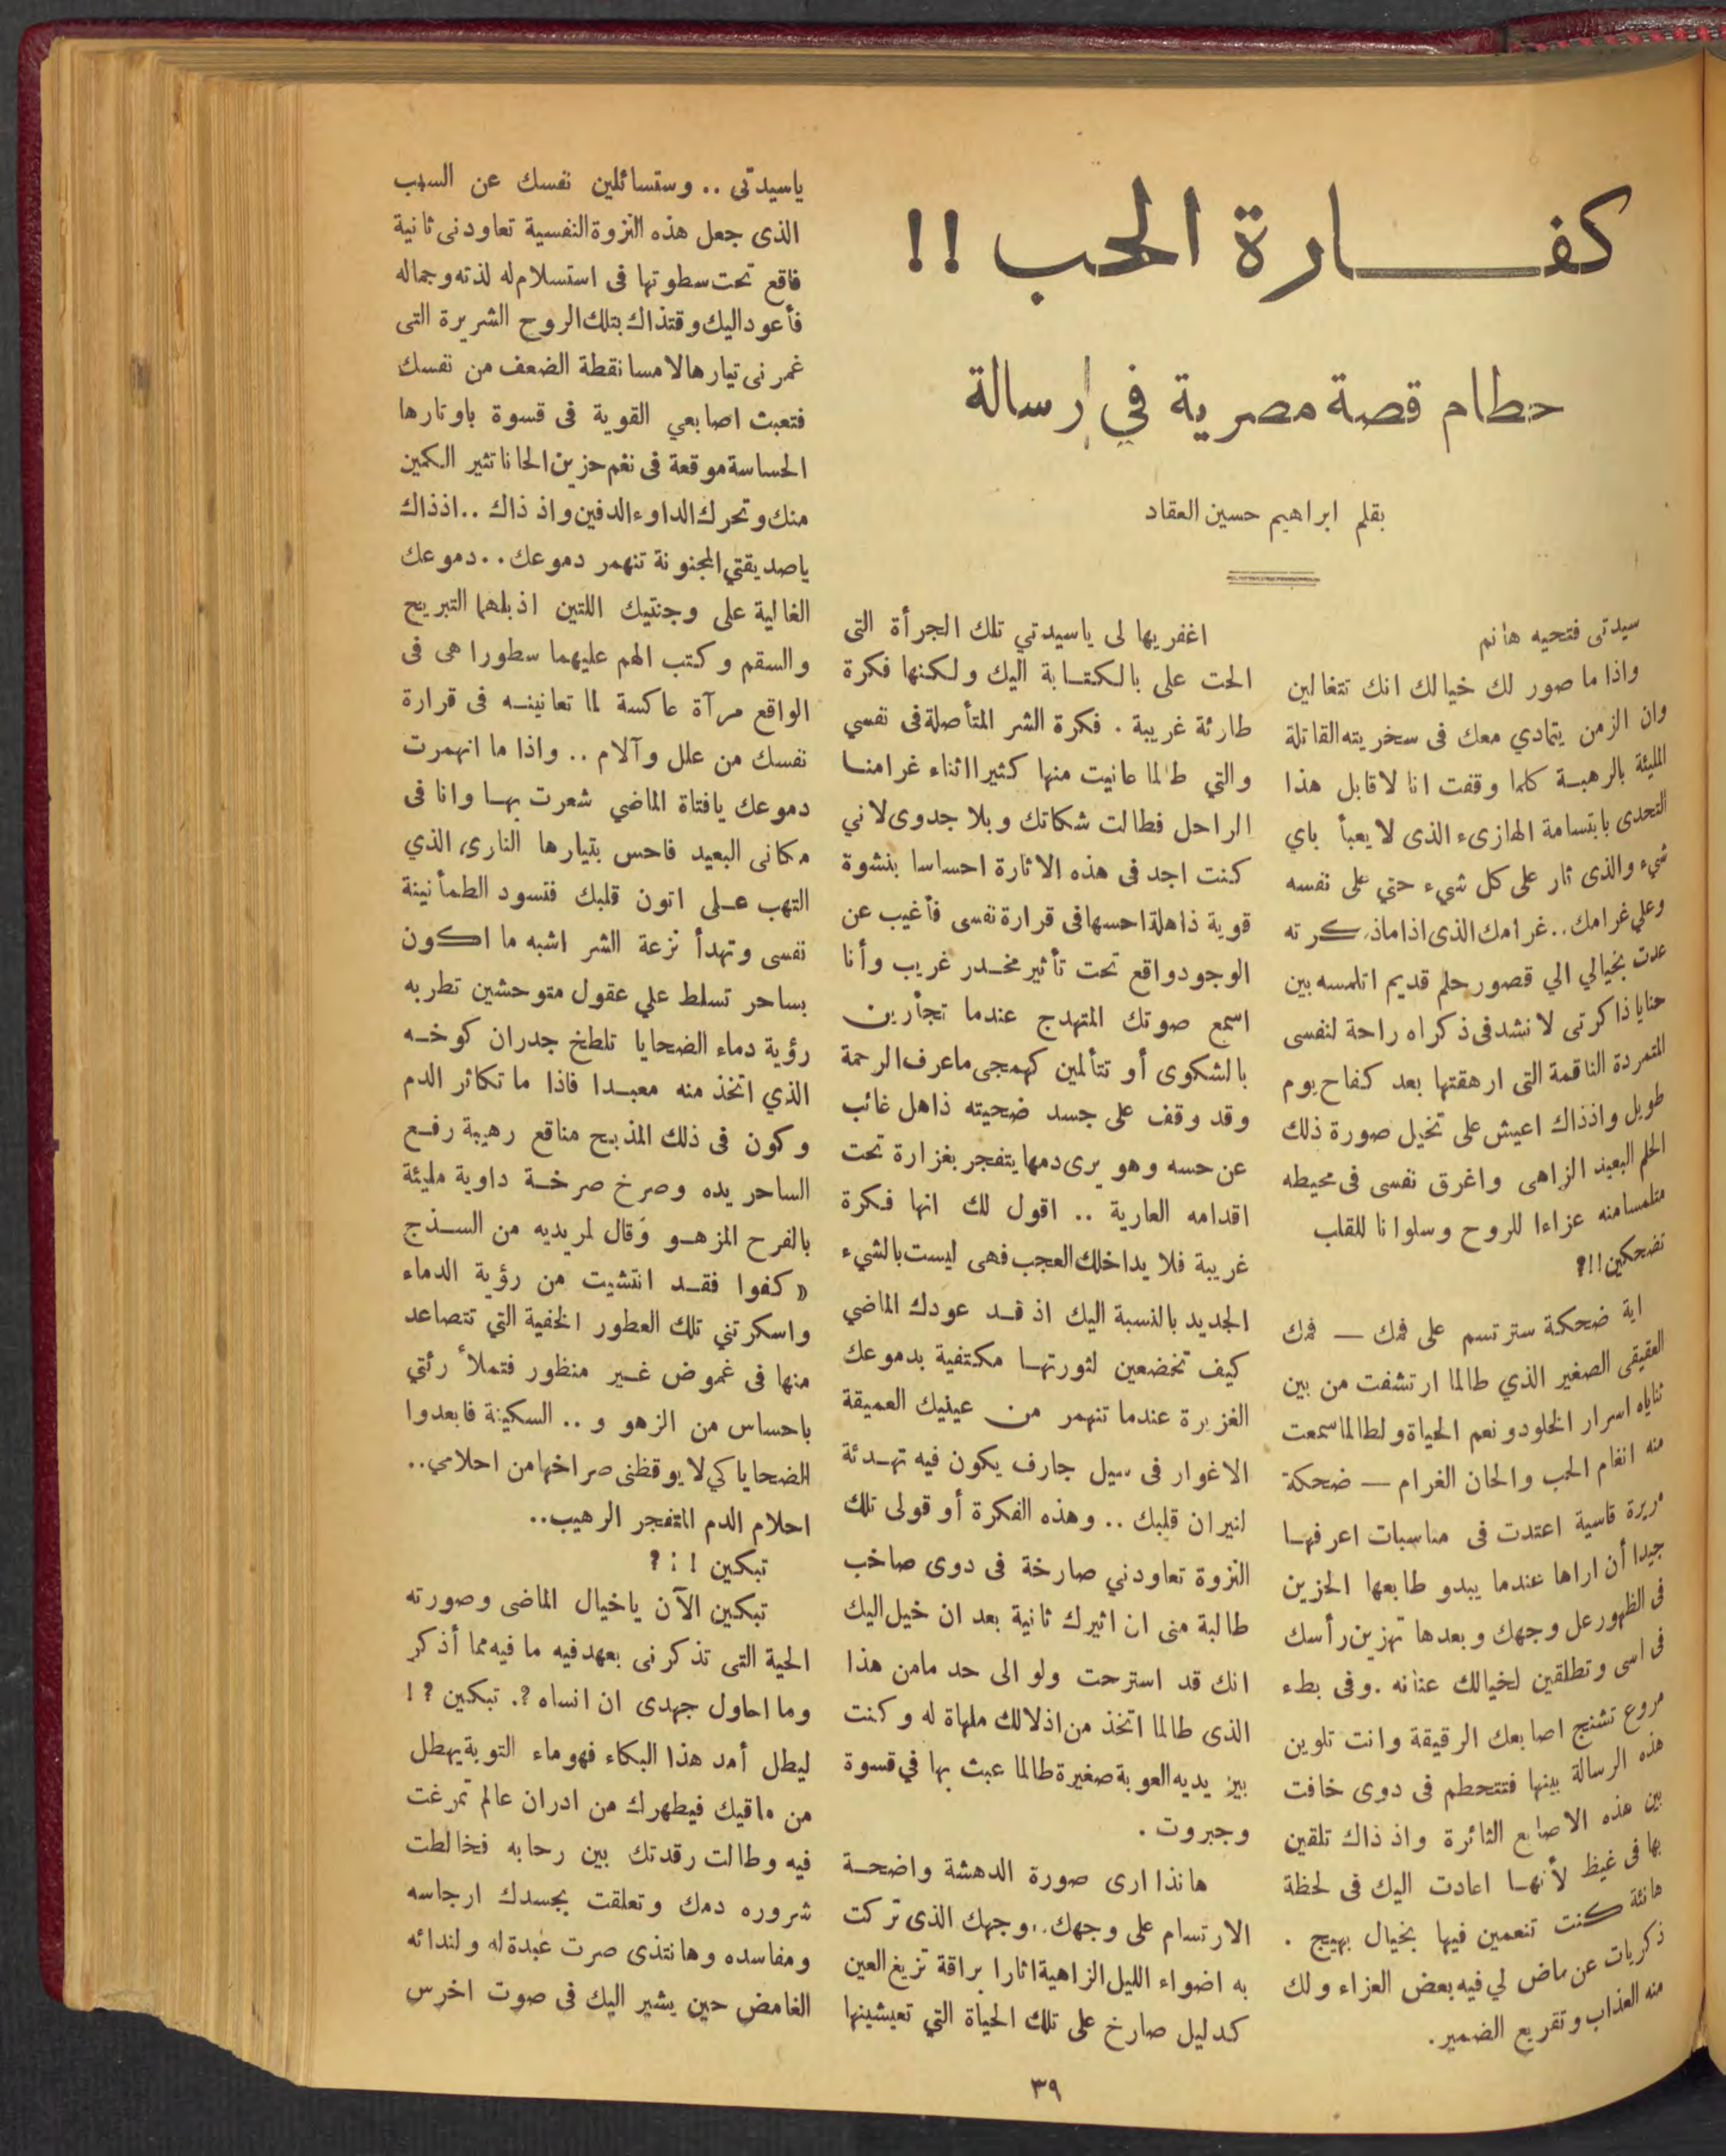 كفارة الحب !!
حطام قصة مصرية في رسالة
بقلم ابراهيم حسين العقاد
سيدتى فتحيه هانم
واذا ما صور لك خيالك انك تتغالين
وان الزمن يتمادي معك فى سخريته القاتلة
المليئة بالرهبة كلما وقفت انا لاقابل هذا
التحدى بابتسامة الهازىء الذى لا يعبأ باي
شيء والذى ثار على كل شيء حتي على نفسه
وعلي غرامك .. غرامك الذى اذا ماذكرته
عدت بخيالي الي قصور حلم قديم اتلمسه بين
حنايا ذاكرتى لانشد فى ذكراه راحة لنفسى
المتمردة الناقمة التى ارهقتها بعد كفاح يوم
طويل واذذاك اعيش على تخيل صورة ذلك
الحلم البعيد الزاهى واغرق نفسى فى محيطه
متلمسا منه عزاءا للروح وسلوانا للقلب
تضحكين !!؟
اية ضحكة سترتسم على فمك — فمك
العقيقى الصغير الذي طالما ارتشفت من بين
ثناياه اسرار الخلود ونعم الحياة ولطالما سمعت
منه انغام الحب والحان الغرام — ضحكة
مريرة قاسية اعتدت فى مناسبات اعرفها
جيدا أن اراها عندما يبدو طابعها الحزين
فى الظهور عل وجهك وبعدها تهزين رأسك
فى اسى وتطلقين لخيالك عنانه . وفى بطء
مروع تشنج اصابعك الرقيقة وانت تلوين
هذه الرسالة بينها فتتحطم فى دوى خافت
بين هذه الاصابع الثائرة واذ ذاك تلقين
بها فى غيظ لأنها اعادت اليك فى لحظة
هانئة كنت تنعمين فيها بخيال بهيج .
ذكريات عن ماض لي فيه بعض العزاء ولك
منه العذاب وتقريع الضمير .
اغفريها لى ياسيدتي تلك الجرأة التى
الحت على بالكتابة اليك ولكنها فكرة
طارئة غريبة . فكرة الشر المتأصلة فى نفسي
والتي طالما عانيت منها كثيرا اثناء غرامنا
الراحل فطالت شكاتك وبلا جدوى لاني
كنت اجد فى هذه الاثارة احساسا بنشوة
قوية ذاهلة احسها فى قرارة نفسى فأغيب عن
الوجود واقع تحت تأثير مخدر غريب وأنا
اسمع صوتك المتهدج عندما تجأرين
بالشكوى أو تتألمين كهمجى ماعرف الرحمة
وقد وقف على جسد ضحيته ذاهل غائب
عن حسه وهو يرى دمها يتفجر بغزارة تحت
اقدامه العارية .. اقول لك انها فكرة
غريبة فلا يداخلك العجب فهى ليست بالشيء
الجديد بالنسبة اليك اذ قد عودك الماضي
كيف تخضعين لثورتها مكتفية بدموعك
الغزيرة عندما تنهمر من عينيك العميقة
الاغوار فى سيل جارف يكون فيه تهدئة
لنيران قلبك .. وهذه الفكرة أو قولى تلك
النزوة تعاودني صارخة فى دوى صاخب
طالبة منى ان اثيرك ثانية بعد ان خيل اليك
انك قد استرحت ولو الى حد مامن هذا
الذى طالما اتخذ من اذلالك ملهاة له وكنت
بين يديه العوبة صغيرة طالما عبث بها في قسوة
وجبروت .
هانذا ارى صورة الدهشة واضحة
الارتسام على وجهك .. وجهك الذى تركت
به اضواء الليل الزاهية اثارا براقة تزيغ العين
كدليل صارخ على تلك الحياة التي تعيشينها
ياسيدتى .. وستسائلين نفسك عن السبب
الذى جعل هذه النزوة النفسية تعاودنى ثانية
فاقع تحت سطوتها فى استسلام له لذته وجماله
فأعود اليك وقتذاك بتلك الروح الشريرة التى
غمرنى تيارها لامسا نقطة الضعف من نفسك
فتعبث اصابعي القوية فى قسوة باوتارها
الحساسة موقعة فى نغم حزين الحانا تثير الكمين
منك وتحرك الداوء الدفين واذ ذاك .. اذذاك
ياصديقتي المجنونة تنهمر دموعك .. دموعك
الغالية على وجنتيك اللتين اذبلهما التبريح
والسقم وكتب الهم عليهما سطورا هى فى
الواقع مرآة عاكسة لما تعانينه فى قرارة
نفسك من علل وآلام .. واذا ما انهمرت
دموعك يافتاة الماضي شعرت بها وانا فى
مكانى البعيد فاحس بتيارها النارى الذي
التهب على اتون قلبك فتسود الطمأنينة
نفسى وتهدأ نزعة الشر اشبه ما اكون
بساحر تسلط علي عقول متوحشين تطربه
رؤية دماء الضحايا تلطخ جدران كوخه
الذي اتخذ منه معبدا فاذا ما تكاثر الدم
وكون فى ذلك المذبح مناقع رهيبة رفع
الساحر يده وصرخ صرخة داوية مليئة
بالفرح المزهو وقال لمريديه من السذج
« كفوا فقد انتشيت من رؤية الدماء
واسكرتني تلك العطور الخفية التي تتصاعد
منها فى غموض غير منظور فتملأ رئتي
باحساس من الزهو و .. السكينة فابعدوا
الضحايا كي لا يوقظنى صراخها من احلامي ..
احلام الدم المتفجر الرهيب ..
تبكين !: ؟
تبكين الآن ياخيال الماضى وصورته
الحية التى تذكرنى بعهد فيه ما فيه مما أذكر
وما احاول جهدى ان انساه ؟. تبكين ؟ !
ليطل أمد هذا البكاء فهو ماء التوبة يهطل
من ماقيك فيطهرك من ادران عالم تمرغت
فيه وطالت رقدتك بين رحابه فخالطت
شروره دمك وتعلقت بجسدك ارجاسه
ومفاسده وهانتذى صرت عبدة له ولندائه
الغامض حين يشير اليك فى صوت اخرس
٣٩